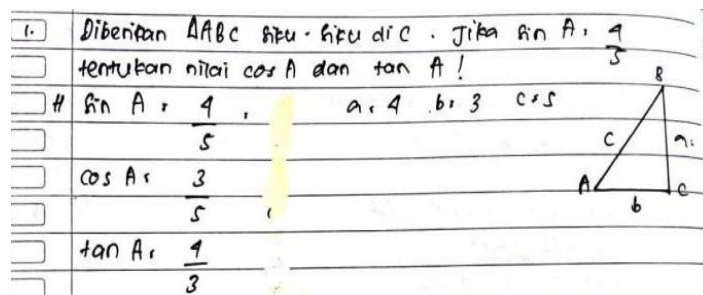 1. Diberikan ΔABC siku-siku di C. Jika sin A = 4/5
tentukan nilai cos A dan tan A!
# sin A = 4/5, a = 4 b = 3 c = 5
cos A = 3/5
tan A = 4/3
B
c a
A C
b